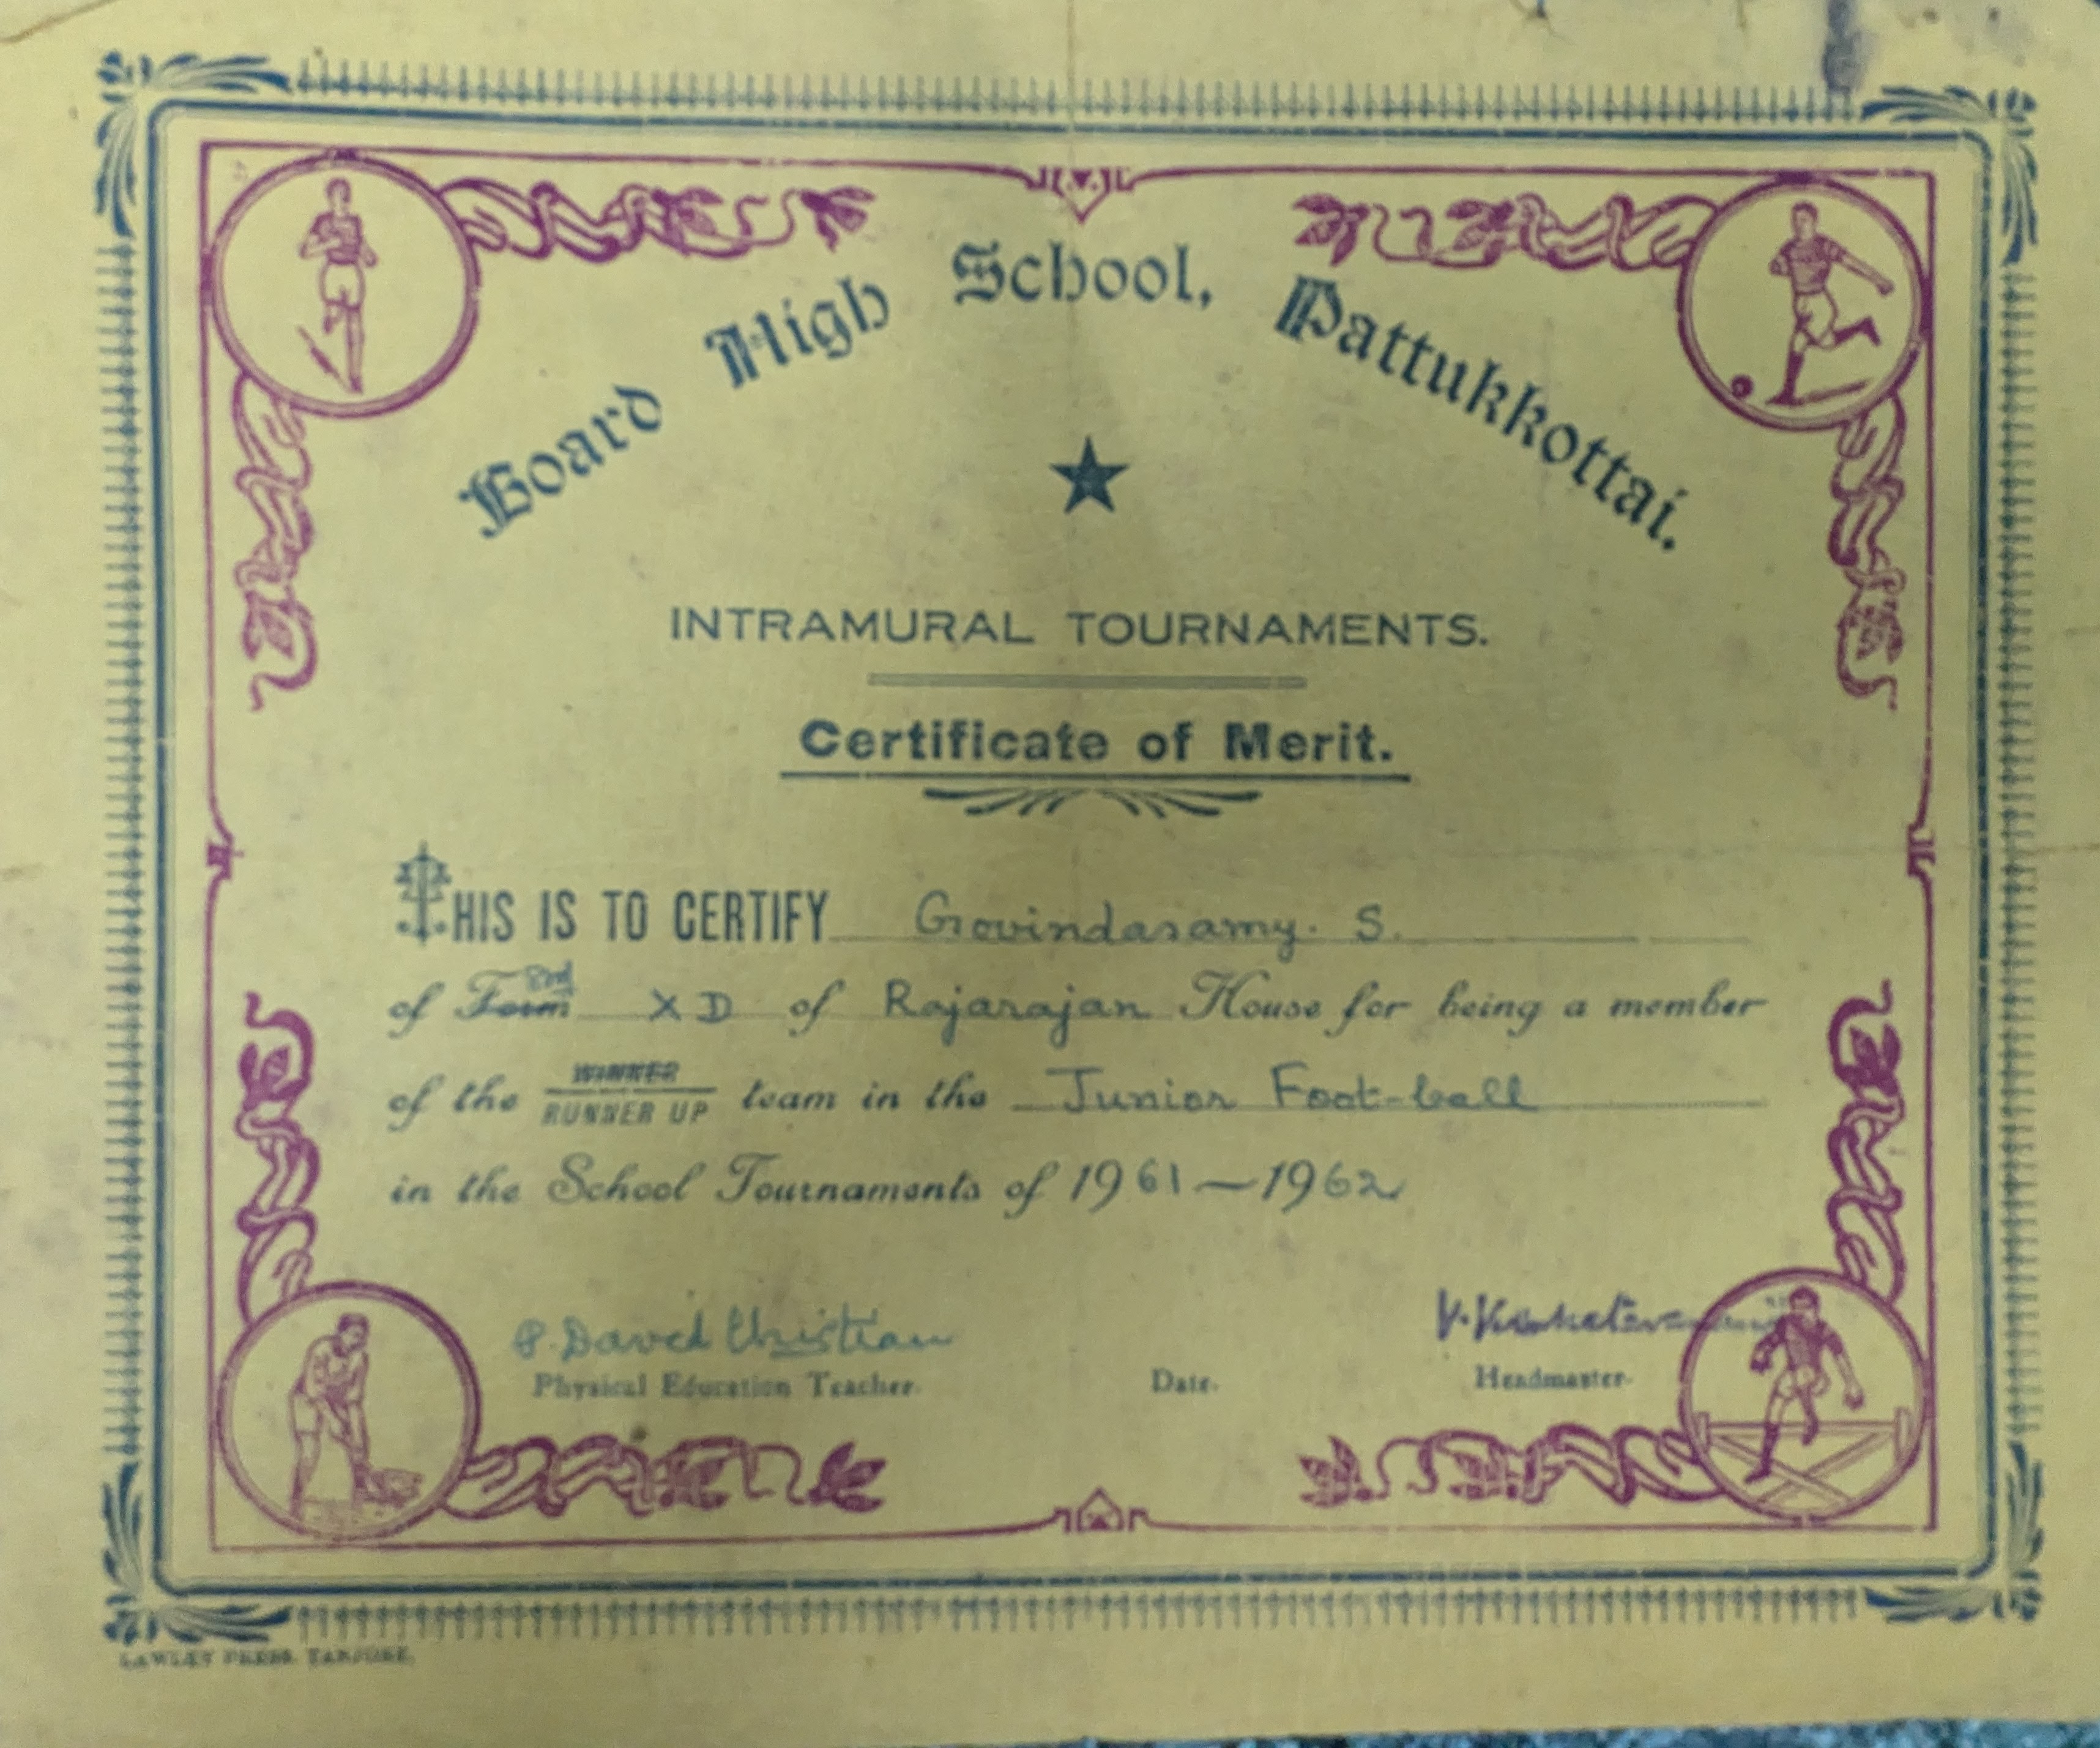 Board High School, Pattukkottai.
INTRAMURAL TOURNAMENTS.
Certificate of Merit.
THIS IS TO CERTIFY Govindasamy. S.
of Form X D of Rajarajan House for being a member
of the WINNER RUNNER UP team in the Junior Foot-ball
in the School Tournaments of 1961—1962
P. David Christian
Physical Education Teacher.
Date.
Headmaster.
LAWLEY PRESS, TANJORE.